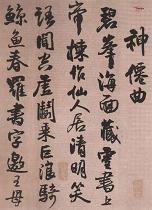 神僊曲
碧峯海面藏靈書上
帝揀作仙人居清明笑
語聞空虛鬬乘巨浪騎
鯨魚春羅書字邀王母